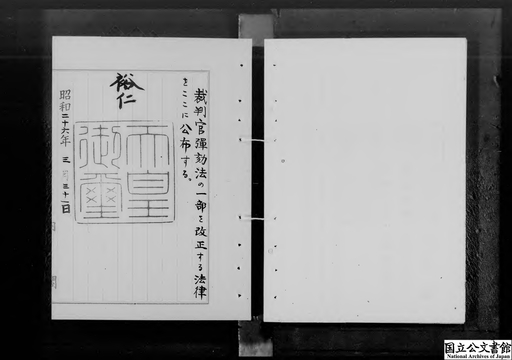 裁判官彈劾法の一部を改正する法律
をここに公布する。
裕仁
天皇
御璽
昭和二十六年三月三十一日
国立公文書館
National Archives of Japan